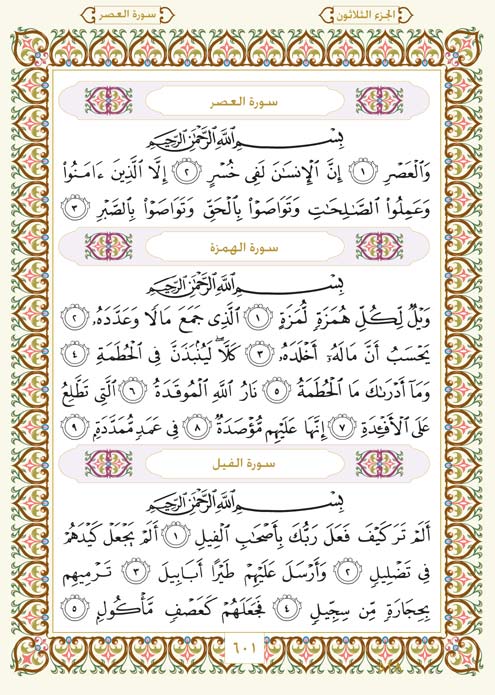 الجزء الثلاثون
سورة العصر
سورة العصر
بِسْمِ اللَّهِ الرَّحْمَٰنِ الرَّحِيمِ
وَالْعَصْرِ ١ إِنَّ الْإِنسَانَ لَفِي خُسْرٍ ٢ إِلَّا الَّذِينَ ءَامَنُوا
وَعَمِلُوا الصَّالِحَاتِ وَتَوَاصَوْا بِالْحَقِّ وَتَوَاصَوْا بِالصَّبْرِ ٣
سورة الهمزة
بِسْمِ اللَّهِ الرَّحْمَٰنِ الرَّحِيمِ
وَيْلٌ لِّكُلِّ هُمَزَةٍ لُّمَزَةٍ ١ الَّذِي جَمَعَ مَالًا وَعَدَّدَهُۥ ٢
يَحْسَبُ أَنَّ مَالَهُۥٓ أَخْلَدَهُۥ ٣ كَلَّا ۖ لَيُنۢبَذَنَّ فِي الْحُطَمَةِ ٤
وَمَآ أَدْرَىٰكَ مَا الْحُطَمَةُ ٥ نَارُ اللَّهِ الْمُوقَدَةُ ٦ الَّتِي تَطَّلِعُ
عَلَى الْأَفْـِٔدَةِ ٧ إِنَّهَا عَلَيْهِم مُّؤْصَدَةٌ ٨ فِي عَمَدٍ مُّمَدَّدَةٍۭ ٩
سورة الفيل
بِسْمِ اللَّهِ الرَّحْمَٰنِ الرَّحِيمِ
أَلَمْ تَرَ كَيْفَ فَعَلَ رَبُّكَ بِأَصْحَابِ الْفِيلِ ١ أَلَمْ يَجْعَلْ كَيْدَهُمْ
فِي تَضْلِيلٍ ٢ وَأَرْسَلَ عَلَيْهِمْ طَيْرًا أَبَابِيلَ ٣ تَرْمِيهِم
بِحِجَارَةٍ مِّن سِجِّيلٍ ٤ فَجَعَلَهُمْ كَعَصْفٍ مَّأْكُولٍۭ ٥
٦٠١